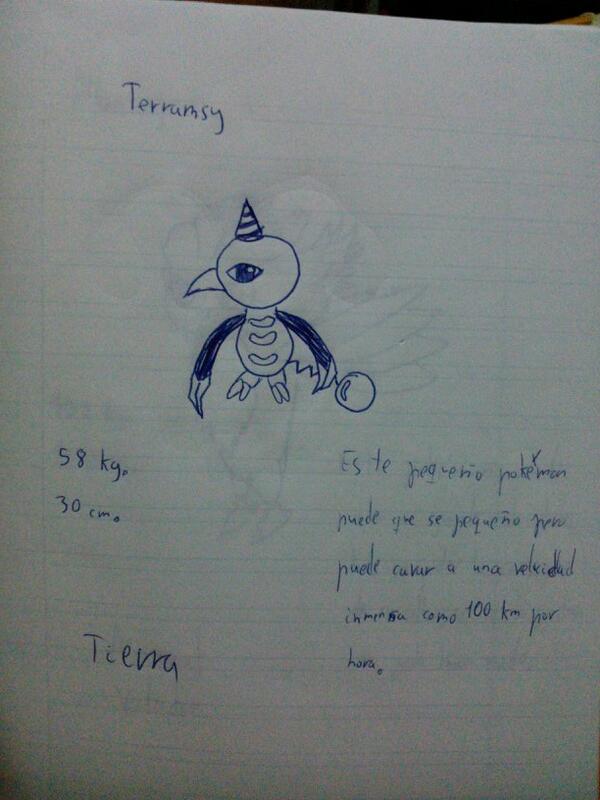 Terramsy
58 kg.
30 cm.
Este pequeño pokémon
puede que se pequeño pero
puede cavar a una velocidad
inmensa como 100 km por
hora.
Tierra